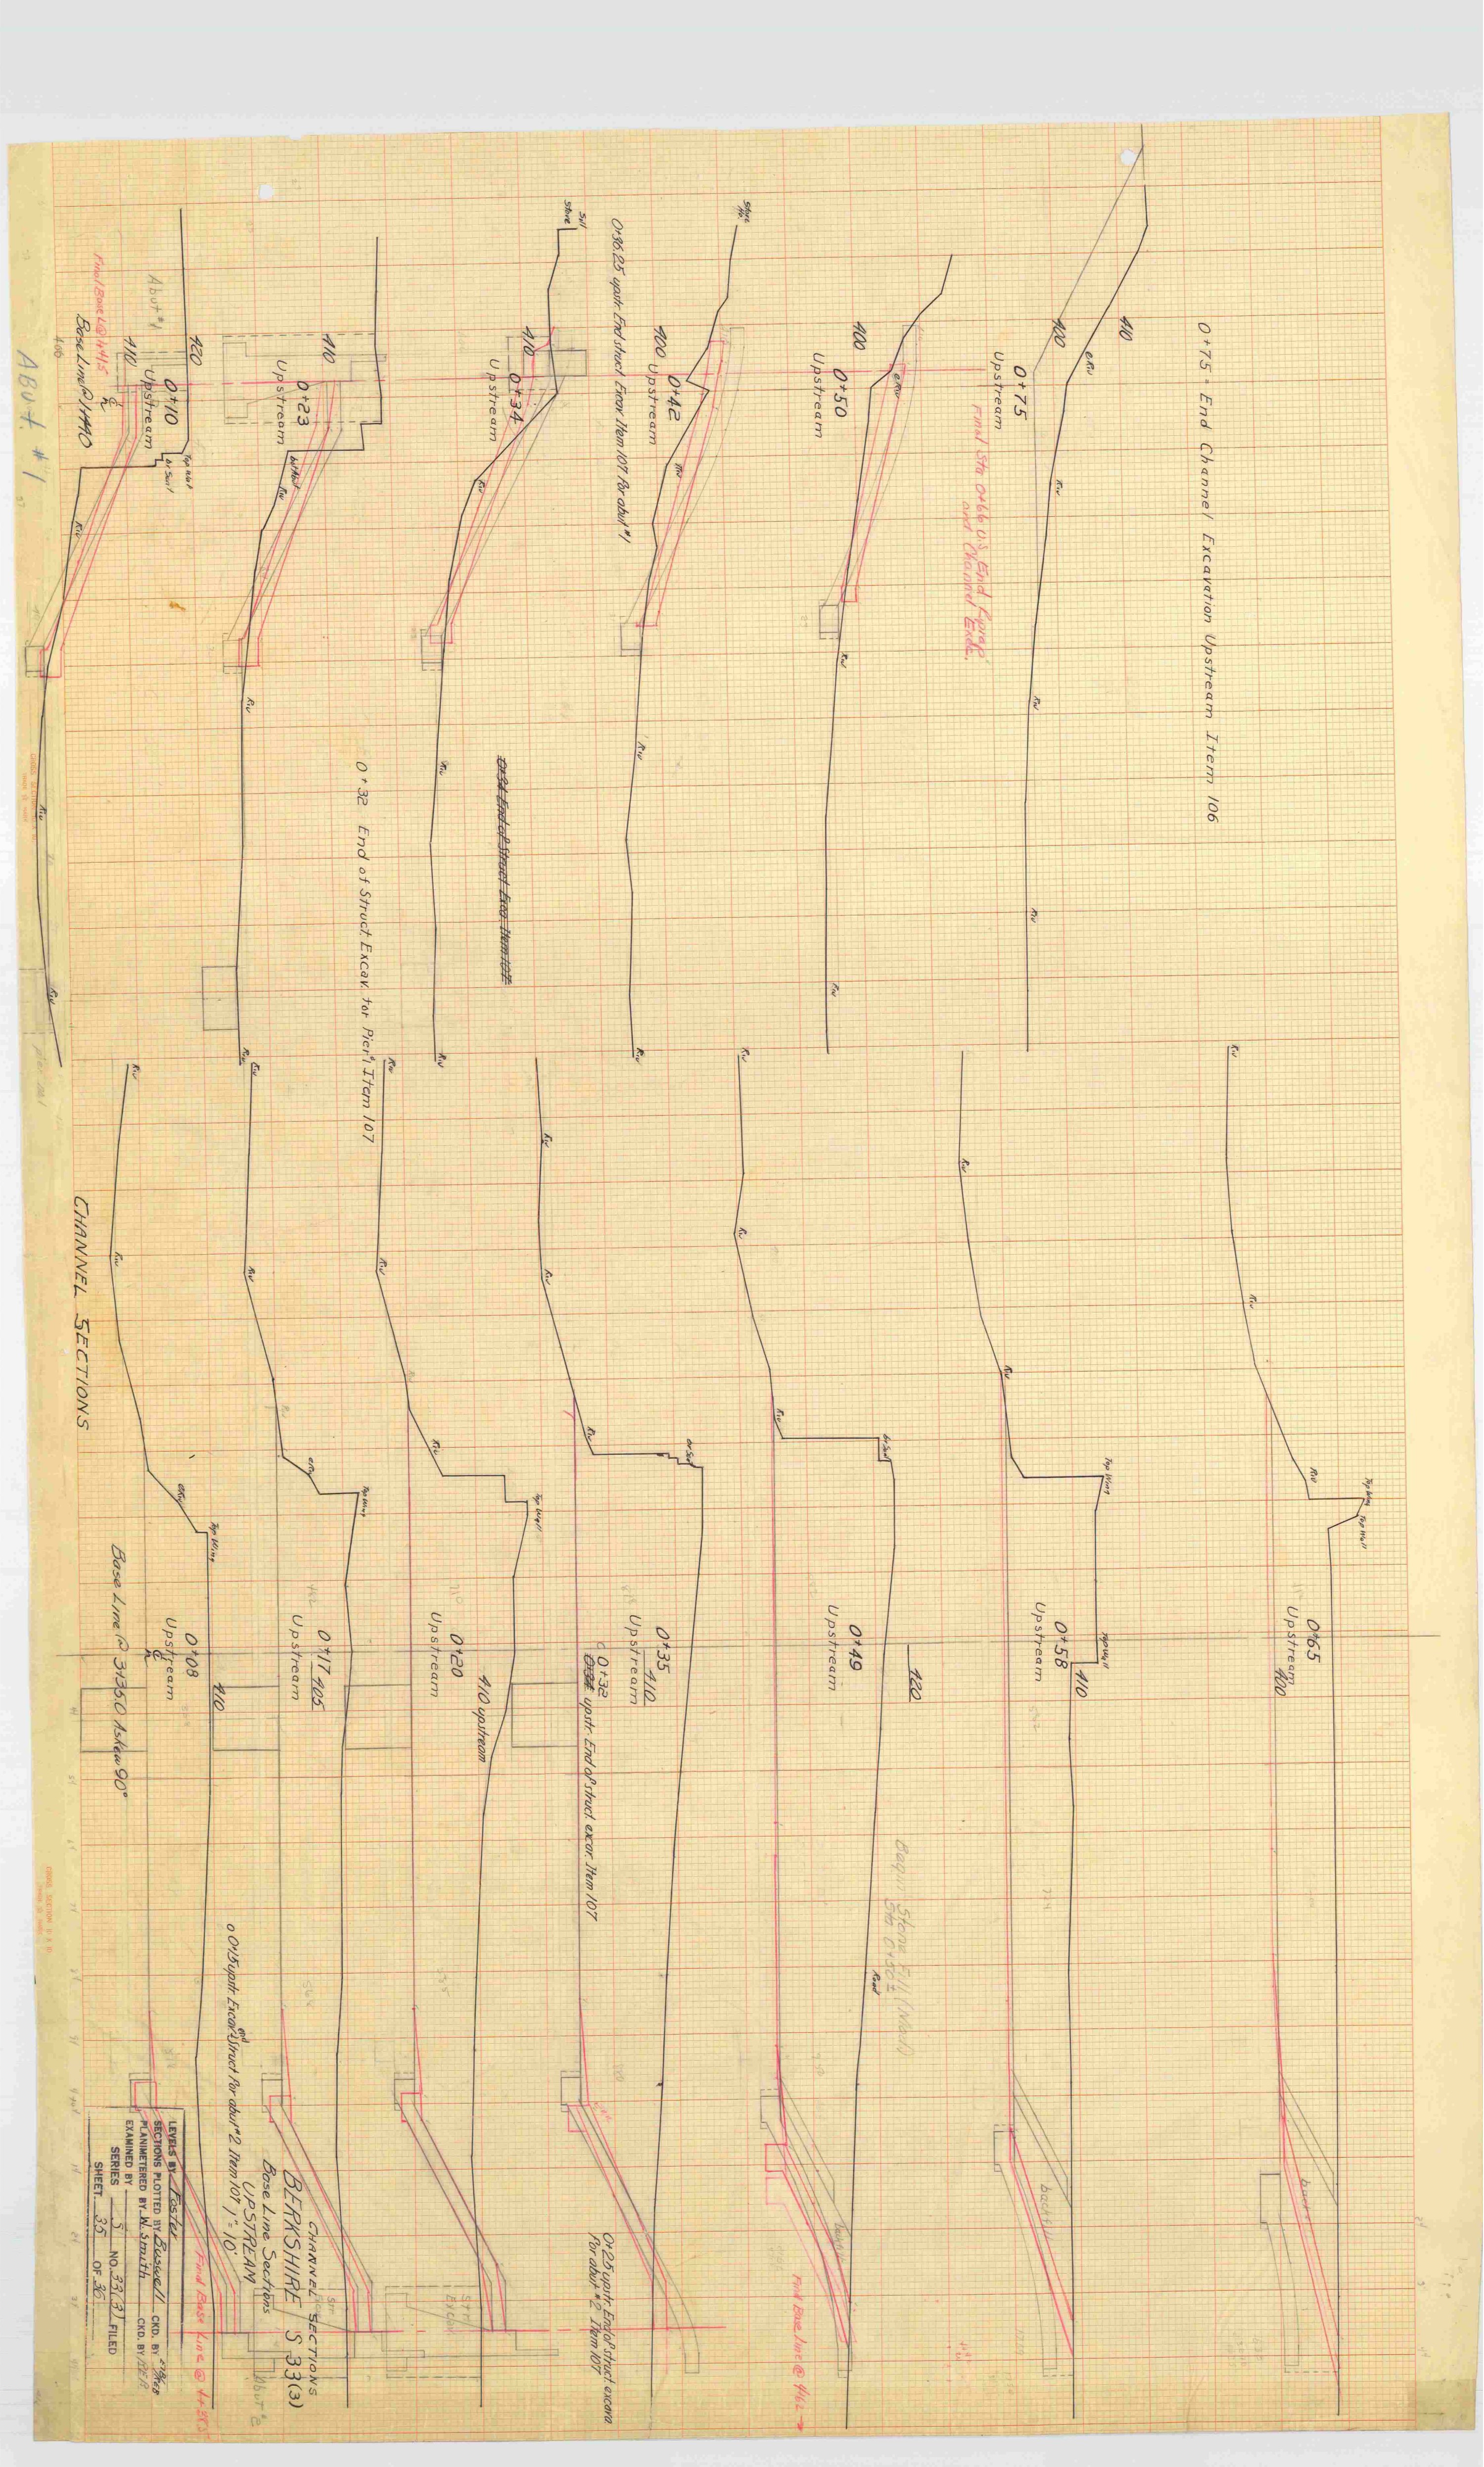 0+75 = End Channel Excavation Upstream Item 106
410
400
0+75
Upstream
Final Sta 0+66 U.S. End Riprap
and Channel Exca.
400
0+50
Upstream
400
0+42
Upstream
0+36.25 upstr. End struct. Excav. Item 107 For abut #1
Sill
Store
410
0+34
Upstream
0+34 End of Struct Exca. Item 107
0+32 End of Struct. Excav. for Pier 1 Item 107
410
0+23
Upstream
bot Abut
420
410
400
0+10
Upstream
Top Wall
br Seat
Abut #1
Final Base L @ 1+41.5
Base Line @ 1+40
ABUT #1
CHANNEL SECTIONS
0+65
Upstream
400
Top Wing
Top Wall
0+58
Upstream
410
Top Wing
Top Wall
backfill
420
0+49
Upstream
br Seat
Road
Begin Stone Fill (Mod)
Sta 0+50±
Final Base line @ 4+62
0+35
410
Upstream
br Seat
0+32
upstr. End of struct. excav. Item 107
0+25 upstr. End of struct excava
For abut #2 Item 107
410 upstream
0+20
Upstream
Top Wall
Str
Excav
0+17
405
Upstream
Top Wing
410
0+08
Upstream
Top Wing
0+15 upstr. Excav. end Struct For abut #2 Item 107
Base Line @ 3+35.0 Askew 90°
CHANNEL SECTIONS
BERKSHIRE S 33(3)
Base Line Sections
UPSTREAM
1"=10'
Abut #2
Final Base Line @
LEVELS BY Foster
SECTIONS PLOTTED BY Buswell CKD. BY
PLANIMETERED BY W. Smith CKD. BY
EXAMINED BY
SERIES S NO. 33(3) FILED
SHEET 35 OF 36